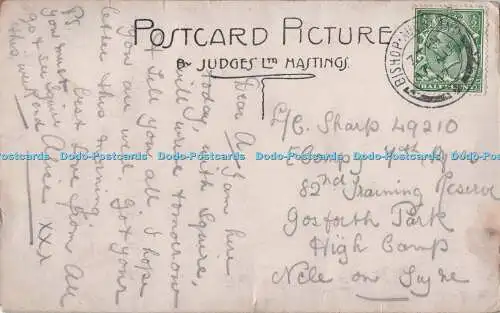 POSTCARD PICTURE
BY JUDGES LTD HASTINGS.
BISHOP
HALFPENNY
Dear A I am here
today, with Squire,
will write tomorrow
& tell you all I hope
you are well. Got your
letter this morning.
best Love from All
Alice xxx
PS
You must
go & see Squire
this week end
L/C. Sharp 49210
E Comp 4th
82nd Training Reserve
Gosforth Park
High Camp
N Cle on Tyne
Dodo-Postcards Dodo-Postcards Dodo-Postcards Dodo-Postcards Dodo-Postcards